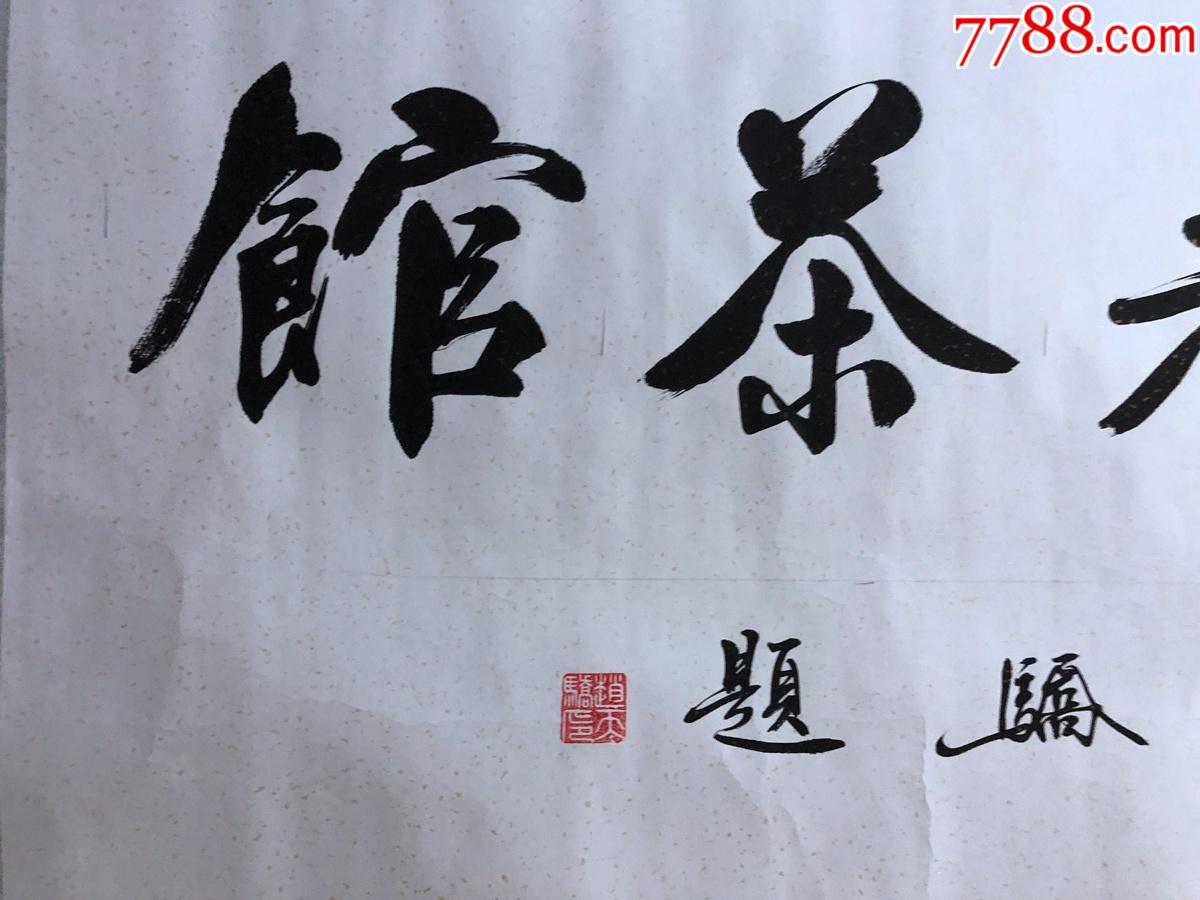 7788.com
茶館
驕題
趙天
驕印